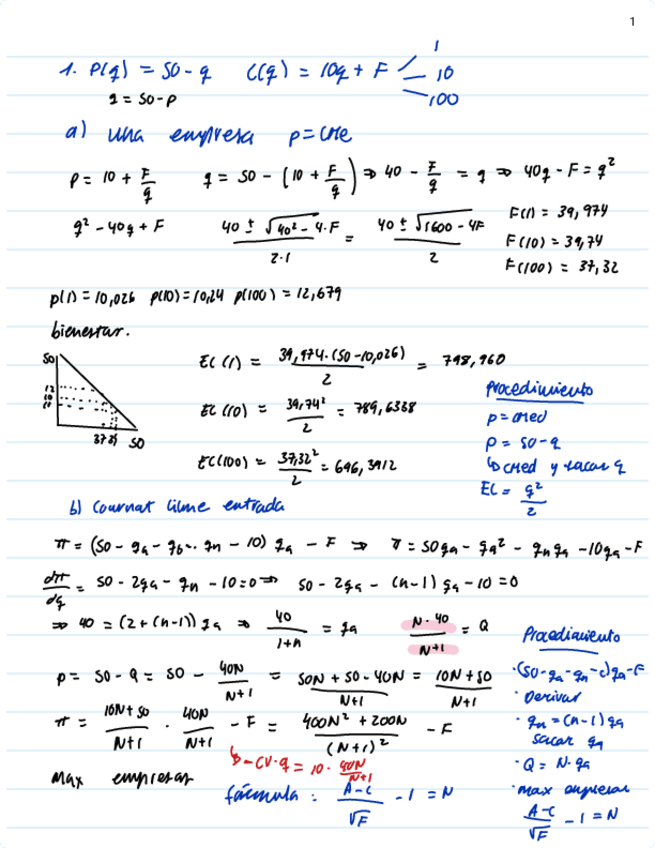 1
1. P(q) = 50 - q   C(q) = 10q + F   1
10
100
q = 50 - p
a) una empresa p = CMe
p = 10 + F/q   q = 50 - (10 + F/q) ⇒ 40 - F/q = q ⇒ 40q - F = q²
q² - 40q + F   (40 ± √(40² - 4·F))/(2·1) = (40 ± √(1600 - 4F))/2
F(1) = 39,974
F(10) = 39,74
F(100) = 37,32
p(1) = 10,026   p(10) = 10,24   p(100) = 12,679
bienestar.
50
12
10
37 39   50
EC(1) = (39,974·(50 - 10,026))/2 = 798,960
EC(10) = 39,74²/2 = 789,6338
EC(100) = 37,32²/2 = 696,3912
Procedimiento
p = cmed
p = 50 - q
↳ cmed y sacar q
EC = q²/2
b) Cournot libre entrada
π = (50 - qa - qb ... qn - 10) qa - F ⇒ π = 50qa - qa² - qnqa - 10qa - F
dπ/dq = 50 - 2qa - qn - 10 = 0 ⇒ 50 - 2qa - (n-1) qa - 10 = 0
⇒ 40 = (2 + (n-1)) qa ⇒ 40/(1+n) = qa   N·40/(N+1) = Q
p = 50 - Q = 50 - 40N/(N+1) = (50N + 50 - 40N)/(N+1) = (10N + 50)/(N+1)
π = (10N + 50)/(N+1) · 40N/(N+1) - F = (400N² + 200N)/(N+1)² - F
↳ - CV·q = 10 · 40N/(N+1)
Max empresas
fórmula : (A-c)/√F - 1 = N
Procedimiento
·(50 - qa - qn - c)qa - F
· Derivar
· qn = (n-1) qa
sacar qa
· Q = N·qa
· max empresas
(A-c)/√F - 1 = N